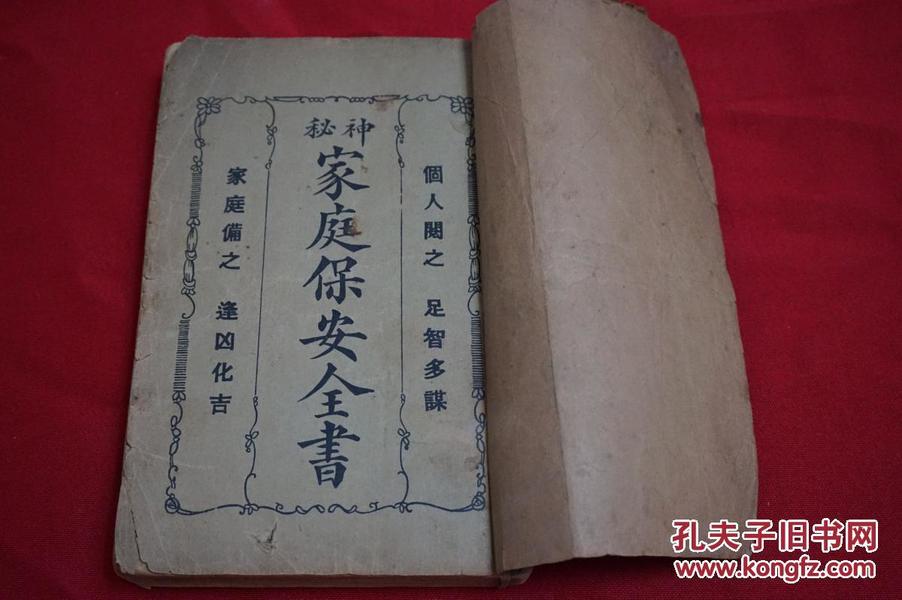 神秘
家庭保安全書
個人閱之 足智多謀
家庭備之 逢凶化吉
孔夫子旧书网
www.kongfz.com